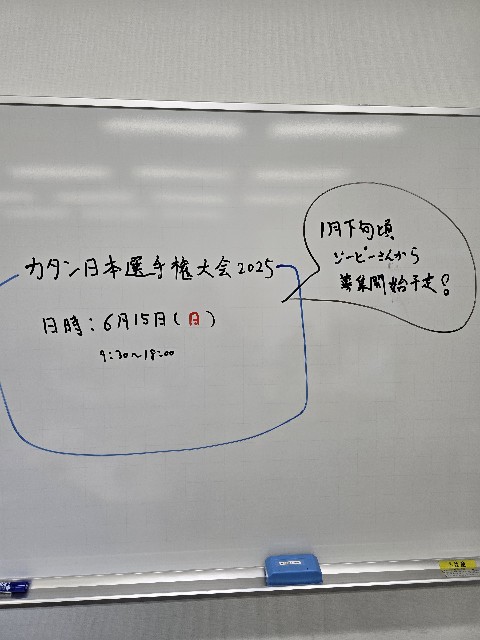 カタン日本選手権大会2025
日時：6月15日(日)
9:30〜18:00
1月下旬頃
ジーピーさんから
募集開始予定！